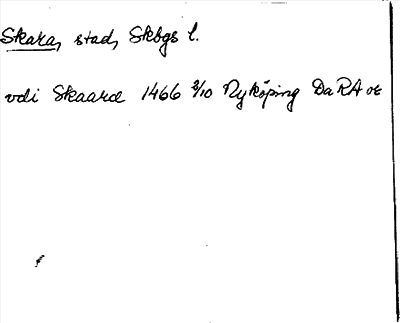 Skara, stad, Skbgs l.
vdi Skaard 1466 2/10 Nyköping Da RA ot